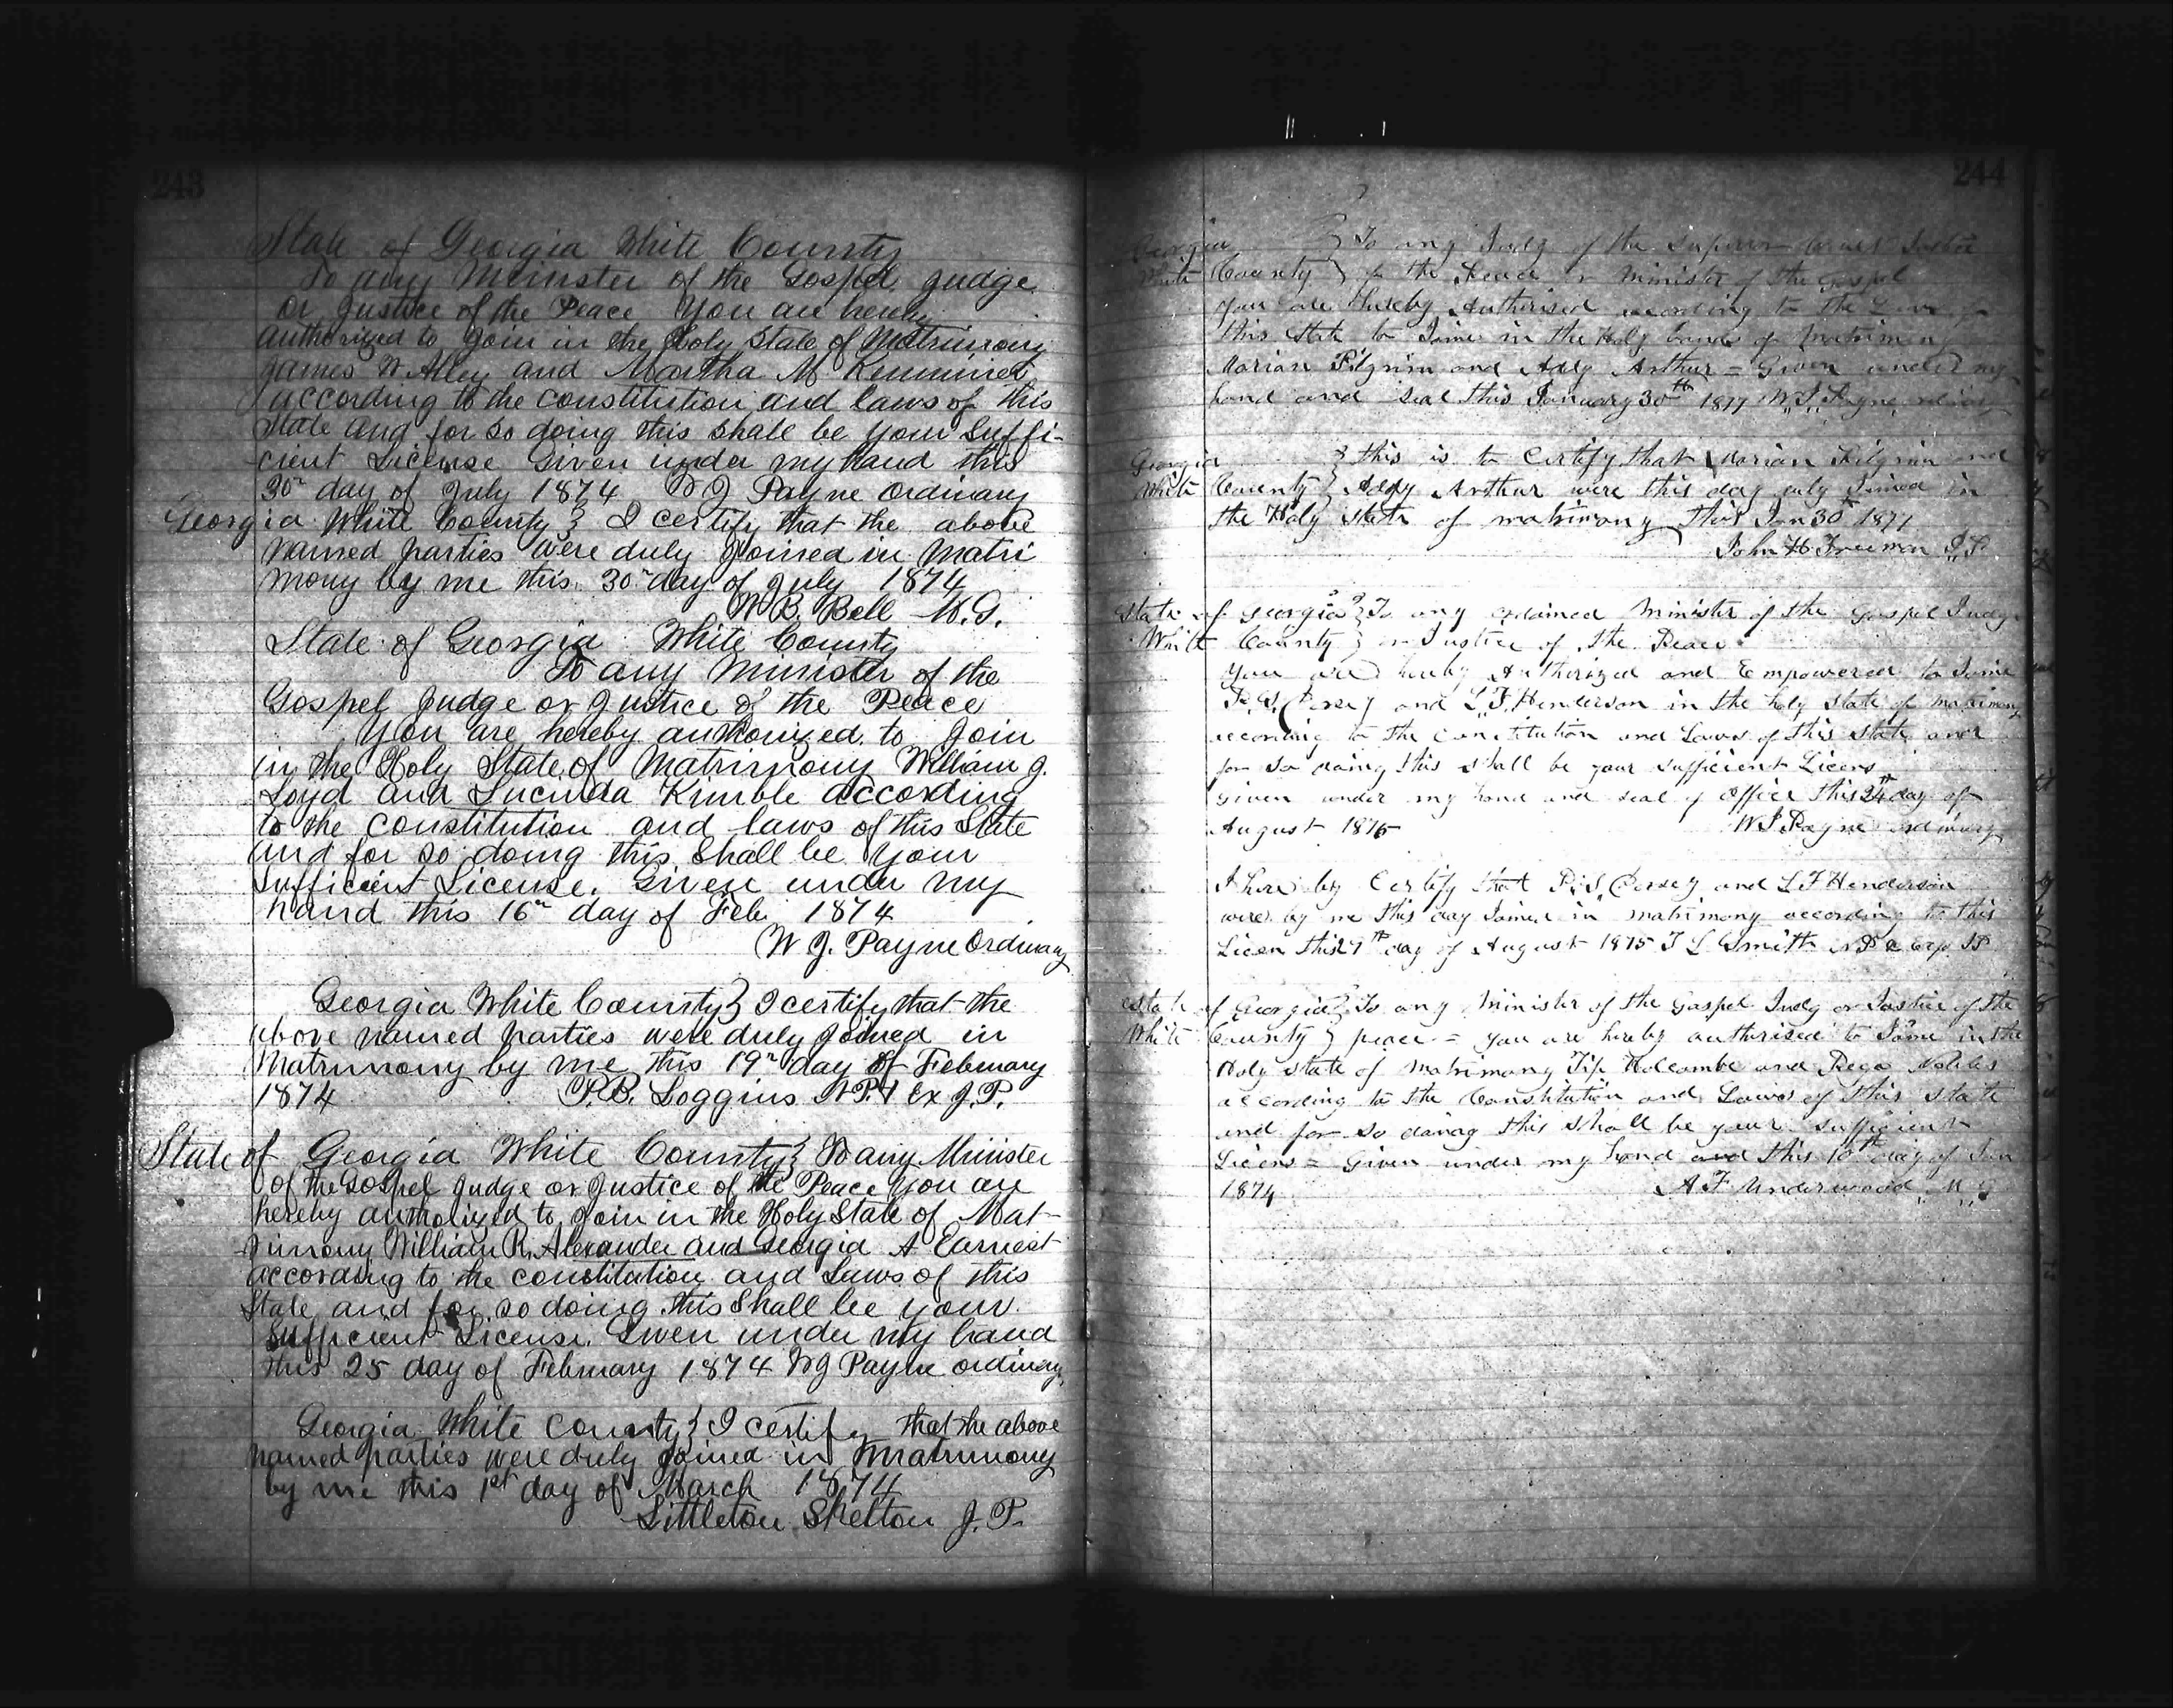 243
State of Georgia White County
To any Meinster of the Gospel, Judge
or Justice of the Peace You are hereby
authorized to Join in the Holy State of Matrimony
James W Alley and Martha M
according to the constitution and laws of this
State and for so doing this shall be your Suffi-
cient License Given under my hand this
30" day of July 1874 W J Payne Ordinary
Georgia White County } I certify that the above
named parties were duly Joined in Matri
mony by me this 30" day of July 1874
W. B. Bell M.G.
State of Georgia White County
To any Minister of the
Gospel Judge or Justice of the Peace
You are hereby authorized to Join
in the Holy State of Matrimony William J.
Loyd and Lucinda Kimble according
to the constitution and laws of this State
and for so doing this shall be your
sufficient License. Given under my
hand this 16" day of Feb. 1874
W J. Payne Ordinary
Georgia White County } I certify that the
above named parties were duly Joined in
Matrimony by me this 19" day of February
1874 P.B. Loggins NP & Ex J.P.
State of Georgia White County } To any Minister
of the Gospel Judge or Justice of the Peace You are
hereby authorized to Join in the Holy State of Mat-
rimony William R. Alexander and Georgia A Earnest
according to the constitution and Laws of this
State and for so doing this Shall be your
Sufficient License. Given under my hand
this 25 day of February 1874 W J Payne ordinary
Georgia White County } I certify that the above
named parties were duly Joined in Matrimony
by me this 1st day of March 1874
Littleton Shelton J. P.
244
Georgia } To any Judg of the Superior Court Justice
White County } of the Peace or Minister of the Gospel
you are hereby Authorised according to the Law of
this State to Joine in the Holy bands of Matrimony
Marian Pilgrim and Addy Arthur = Given under my
hand and seal this January 30th 1877 W.J. Payne ordinary
Georgia } this is to Certify that Marian Pilgrim and
White County } Addy Arthur were this day duly Joined in
the Holy State of matrimony this Jan 30 1877
John H Freeman J.P.
State of Georgia } To any ordained Minister of the Gospel Judg
White County } or Justice of the Peace
you are hereby Authorized and Empowered to Joine
and L.F. Henderson in the holy State of matrimony
according to the Constitution and Laws of this State and
for so doing this shall be your sufficient Licens
Given under my hand and seal of office this 24th day of
August 1875 W J Payne ordinary
I hereby Certify that and L F Henderson
were by me this day Joined in matrimony according to this
Licen this 29th day of August 1875 J L Smith NP & exo JP
State of Georgia } To any Minister of the Gospel Judg or Justice of the
White County } peace = you are hereby authorised to Joine in the
Holy State of matrimony Tip Holcombe and
according to the Constitution and Laws of this State
and for so doing this shall be your sufficient
Licens = Given under my hand and this 10th day of Jan
1874 A F Underwood M G